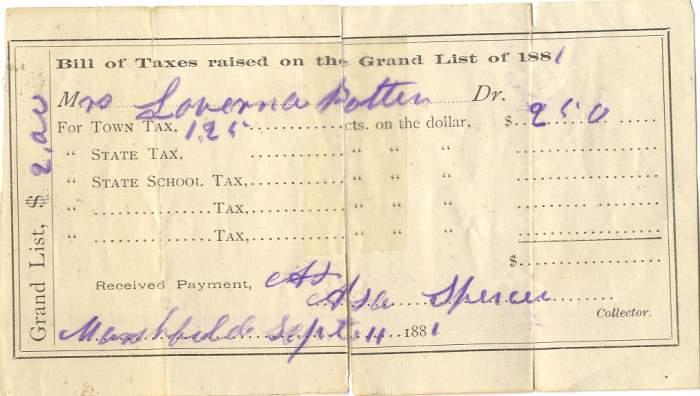 Bill of Taxes raised on the Grand List of 1881
Mrs Loverna Potter Dr.
For Town Tax, 1.25 cts. on the dollar, $ 2 50
“ State Tax, “ “ “
“ State School Tax, “ “ “
“ Tax, “ “ “
“ Tax, “ “ “
$
Received Payment,
Asa Spencer
Collector.
Marshfield Sept 11 1881
Grand List, $ 2,00